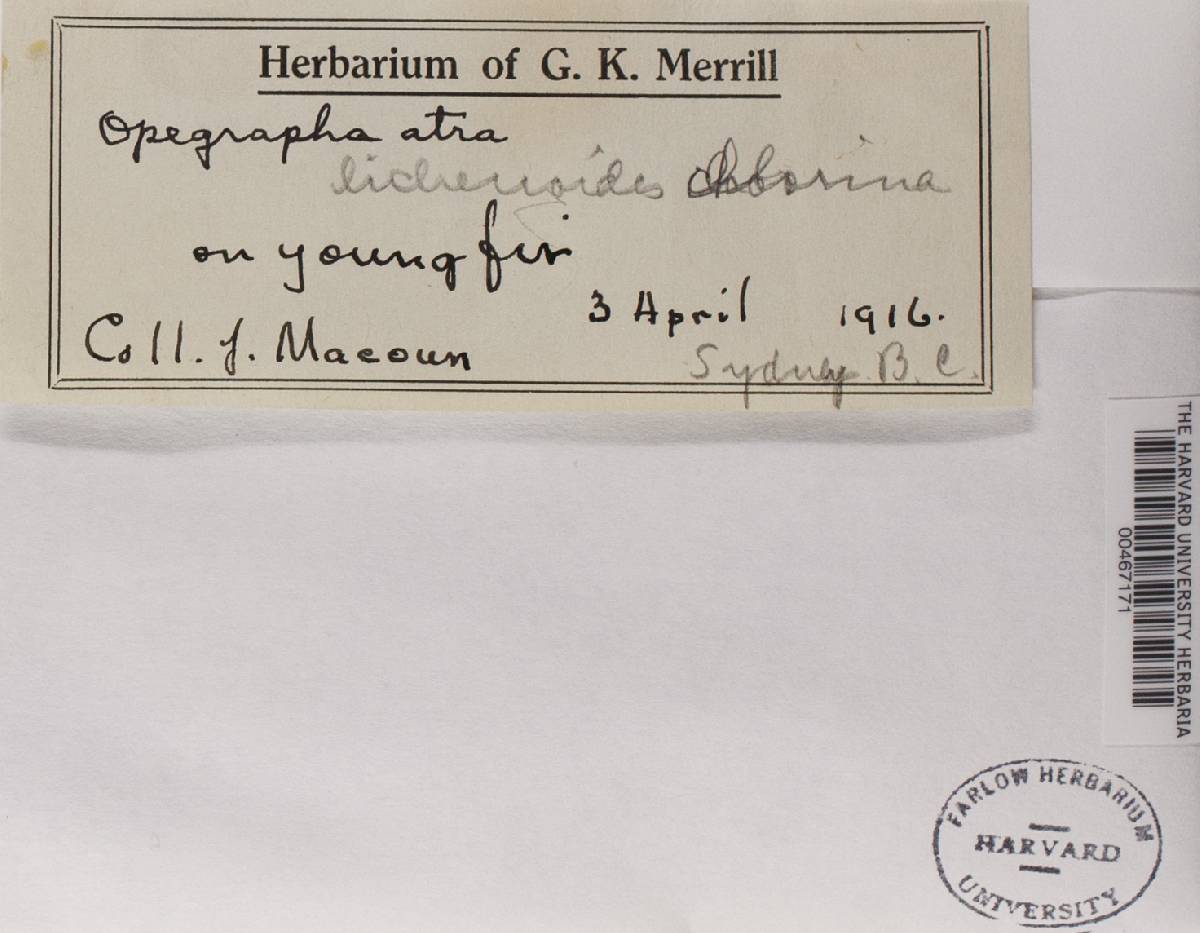 Herbarium of G. K. Merrill
Opegrapha atra
lichenoides
on young fir
3 April 1916.
Coll. J. Macoun
Sydney B. C.
THE HARVARD UNIVERSITY HERBARIA
00467171
FARLOW HERBARIUM
HARVARD
UNIVERSITY